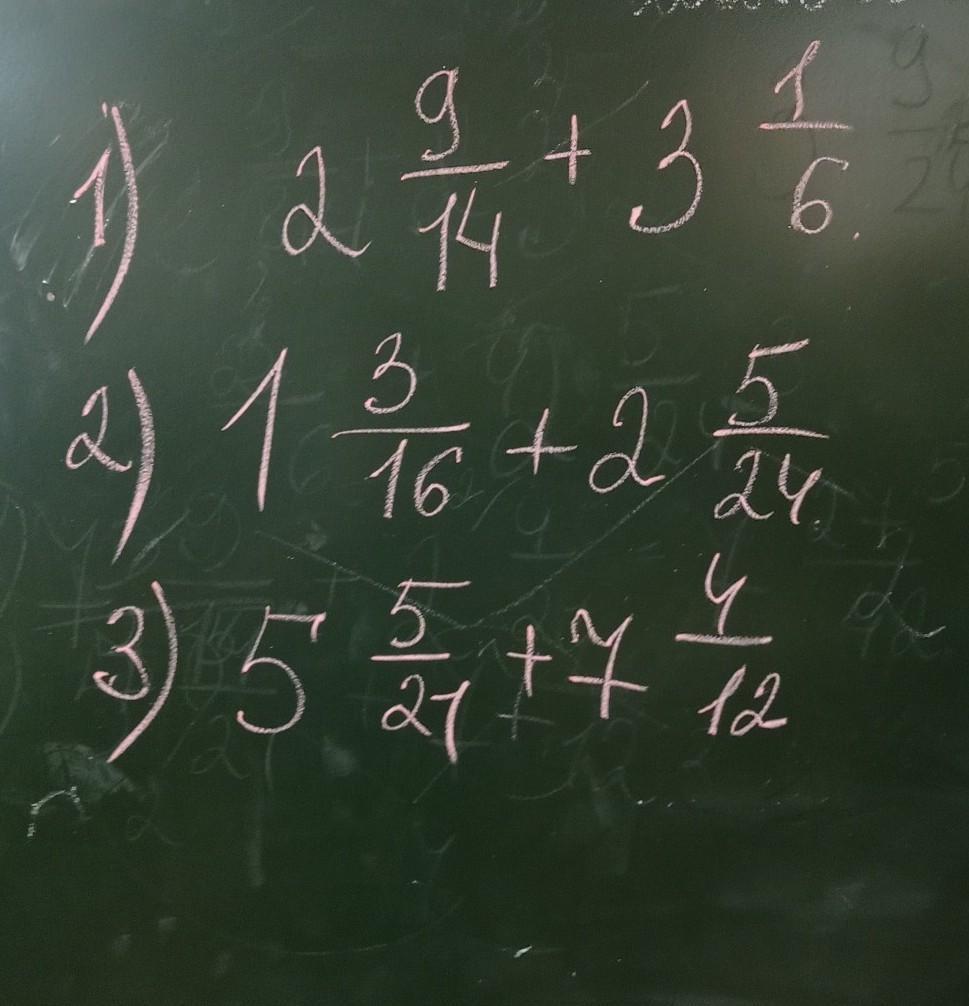 1) 2 9/14 + 3 1/6
2) 1 3/16 + 2 5/24
3) 5 5/21 + 7 4/12